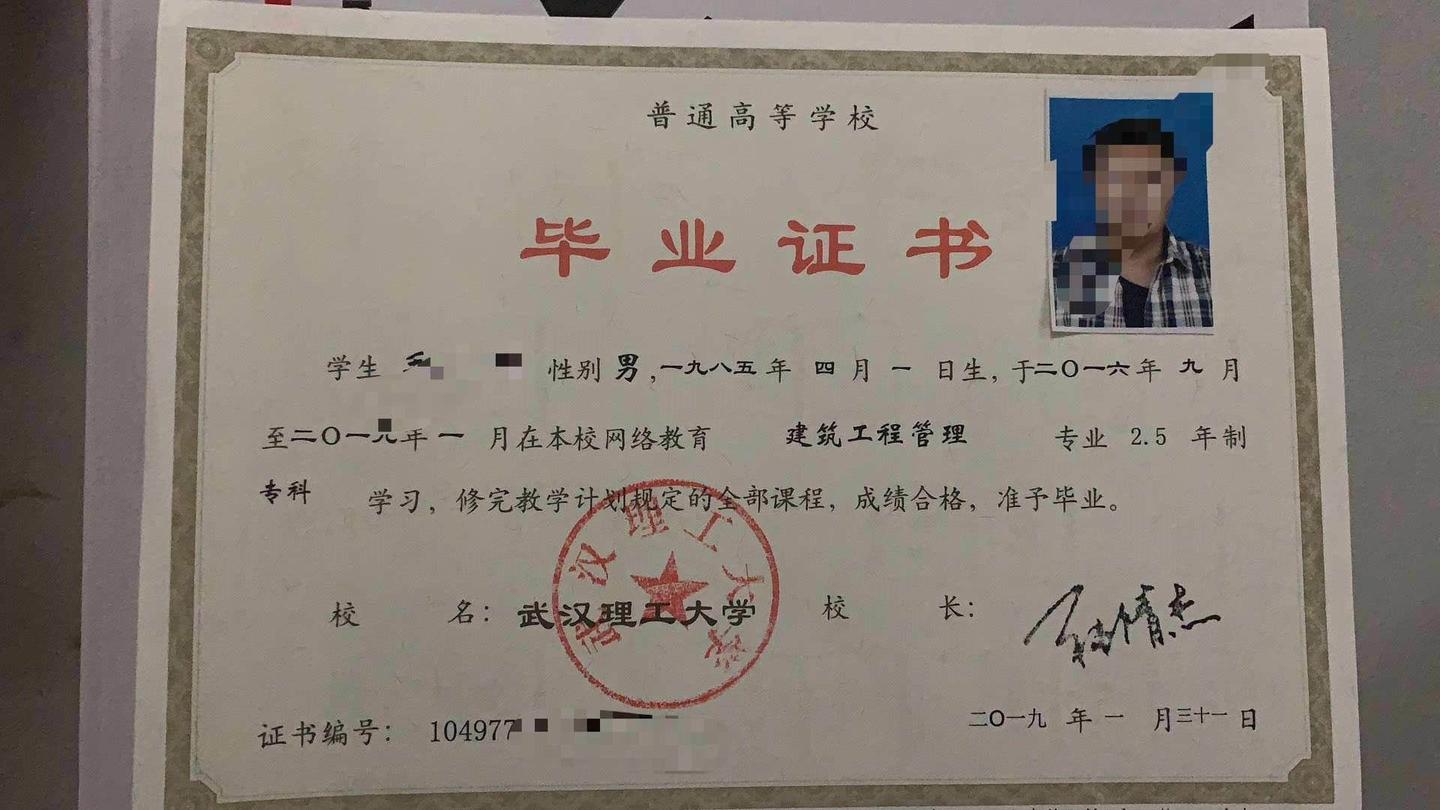 普通高等学校
毕业证书
学生 性别 男,一九八五年 四 月 一 日生,于二〇一六年 九 月
至二〇一九年 一 月在本校网络教育 建筑工程管理 专业 2.5 年制
专科 学习,修完教学计划规定的全部课程,成绩合格,准予毕业。
武汉理工大学
校 名:武汉理工大学 校 长:
证书编号:104977
二〇一九 年 一 月三十一日